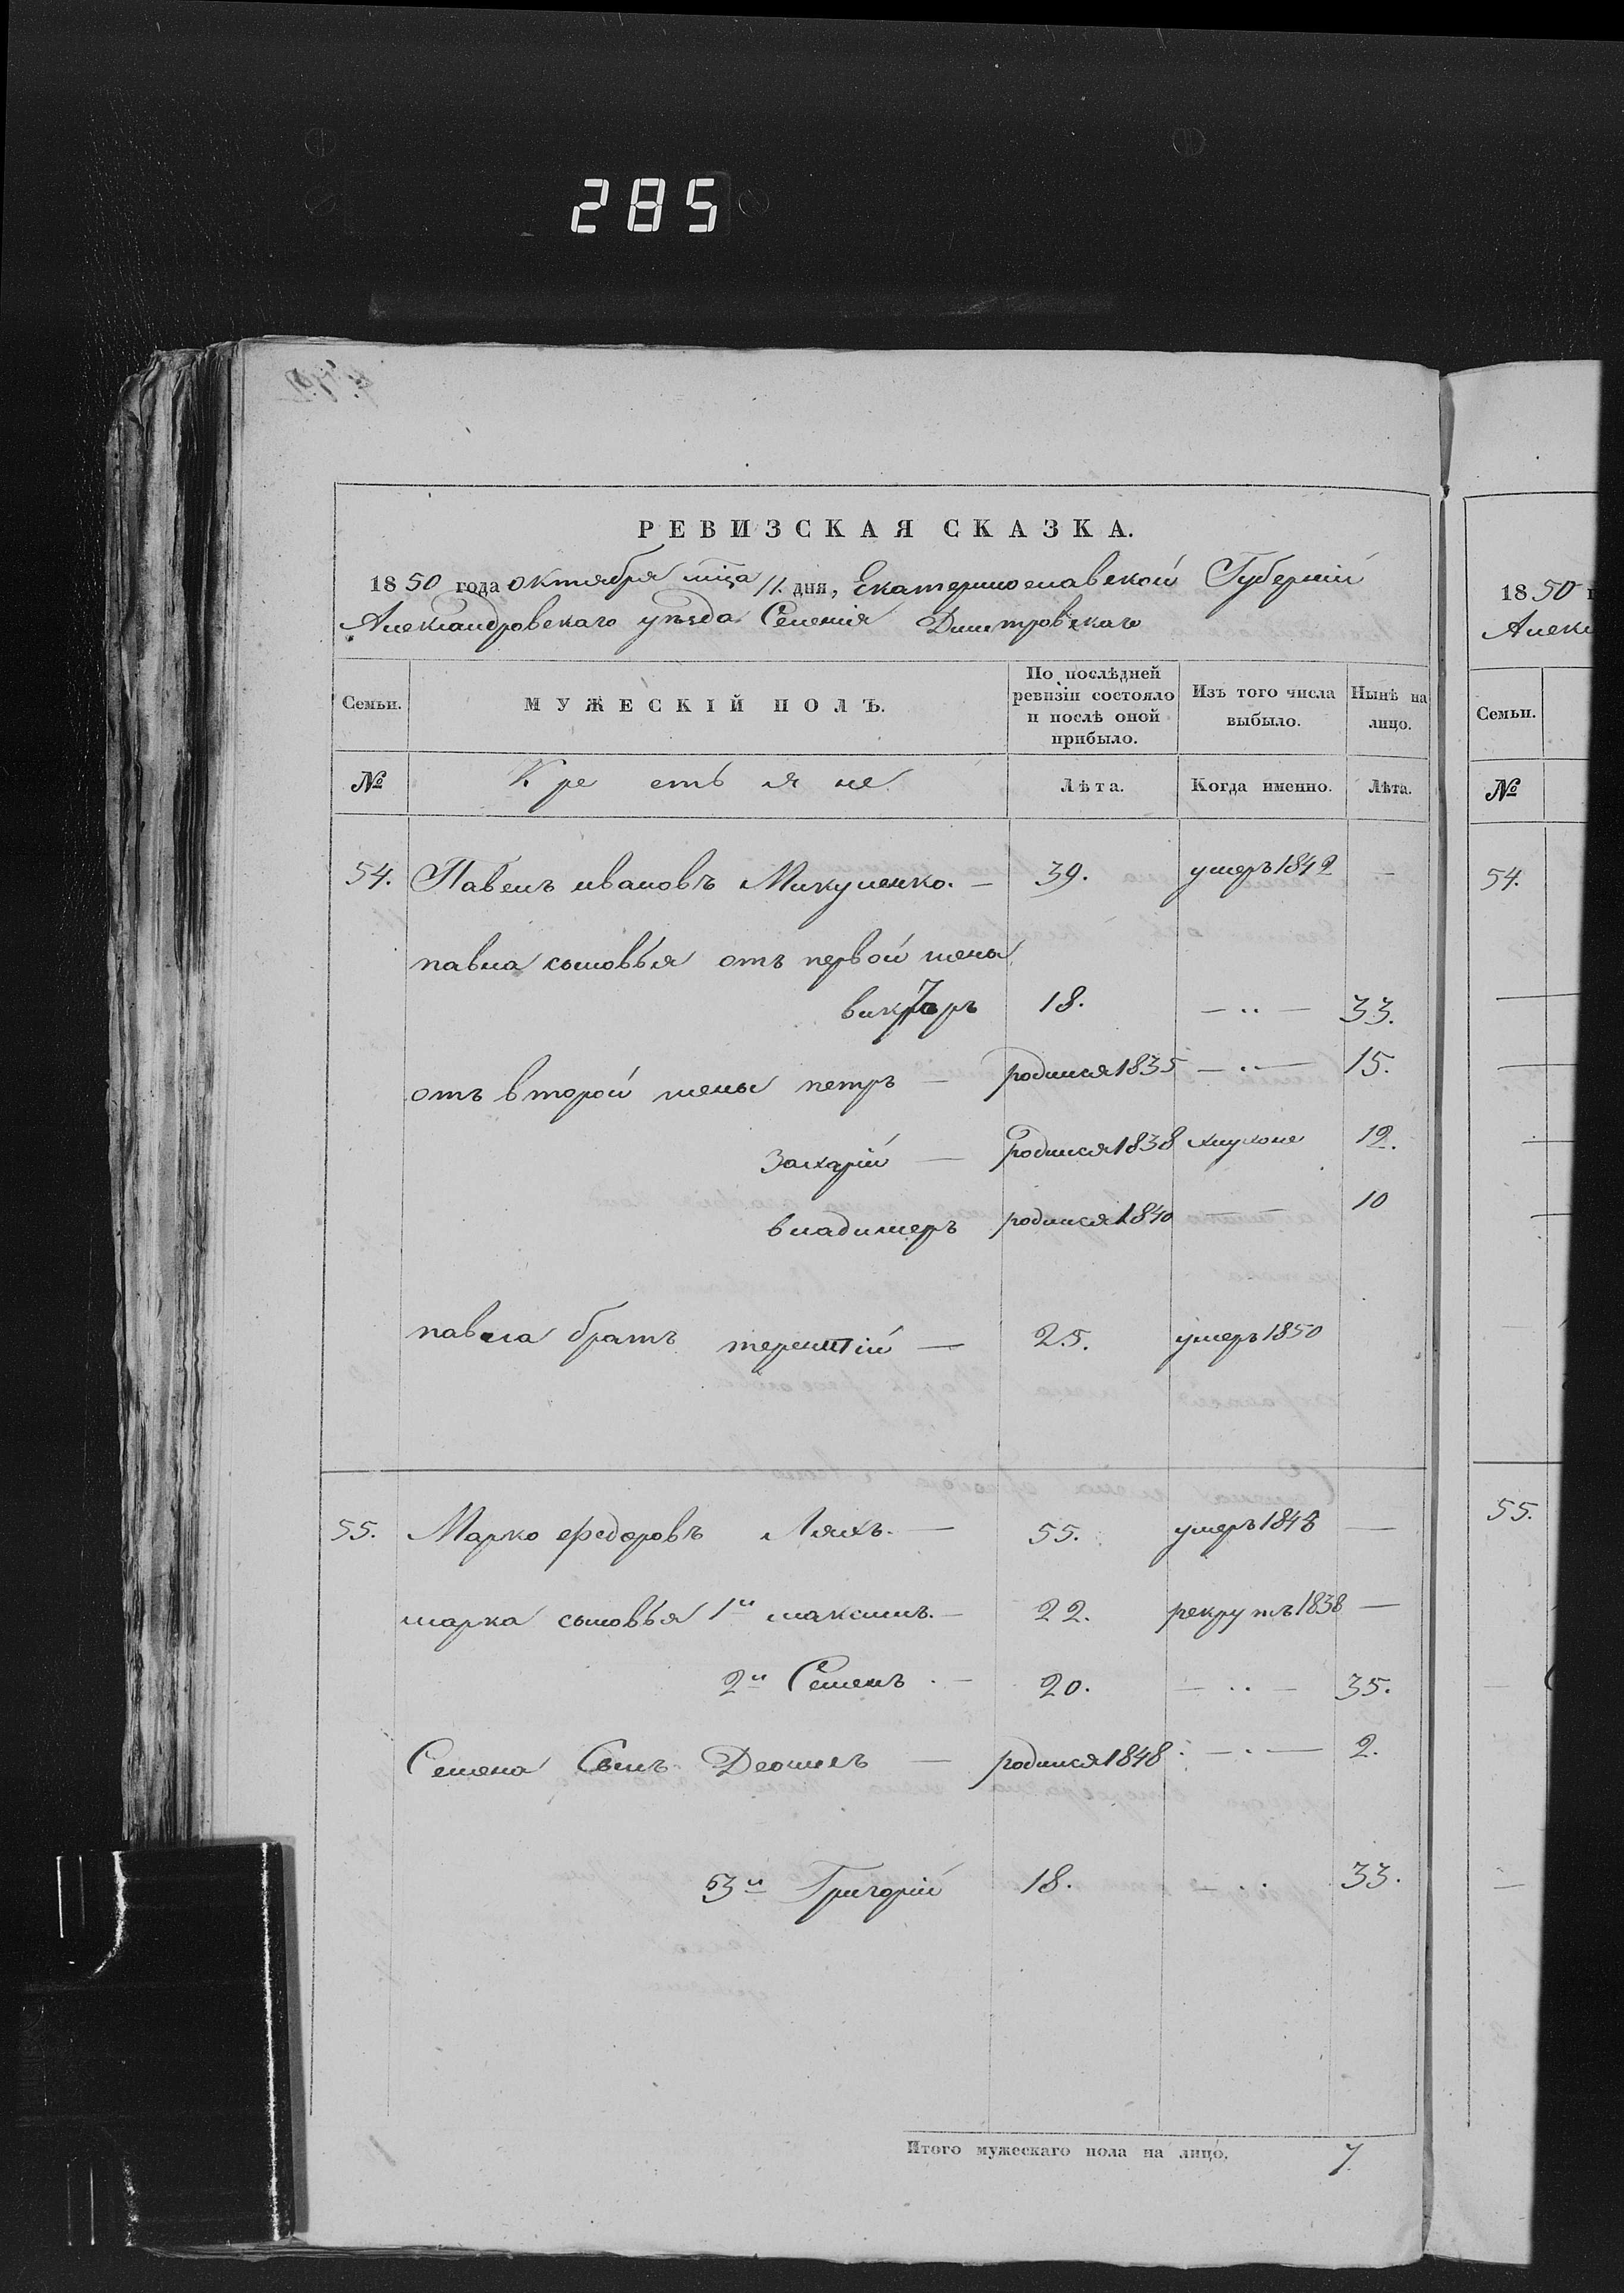 285
РЕВИЗСКАЯ СКАЗКА.
1850 года октября мца 11. дня, Екатеринославской Губерніи
Александровскаго уѣзда Селенія Дмитровскаго
Семьи.
МУЖЕСКІЙ ПОЛЪ.
По послѣдней ревизіи состояло и послѣ оной прибыло.
Изъ того числа выбыло.
Нынѣ на лицо.
№ Крестьяне Лѣта. Когда именно. Лѣта.
54. Павелъ ивановъ Микуленко. — 39. умеръ 1842 —
павла сыновья отъ первой жены
викторъ 18. — .. — 33.
отъ второй жены петръ — родился 1835 — .. — 15.
захарій — родился 1838 12.
владимеръ родился 1840 10
павла братъ терентій — 25. умеръ 1850
55. Марко федоровъ Ляхъ. — 55. умеръ 1848 —
марка сыновья 1й максимъ. — 22. рекрутъ 1838 —
2й Семенъ. — 20. — .. — 35.
Семена Сынъ — родился 1848. — .. — 2.
3й Григорій 18. — .. 33.
Итого мужескаго пола на лицо. 7.
1850
Алекс
Семьи.
№
54.
55.